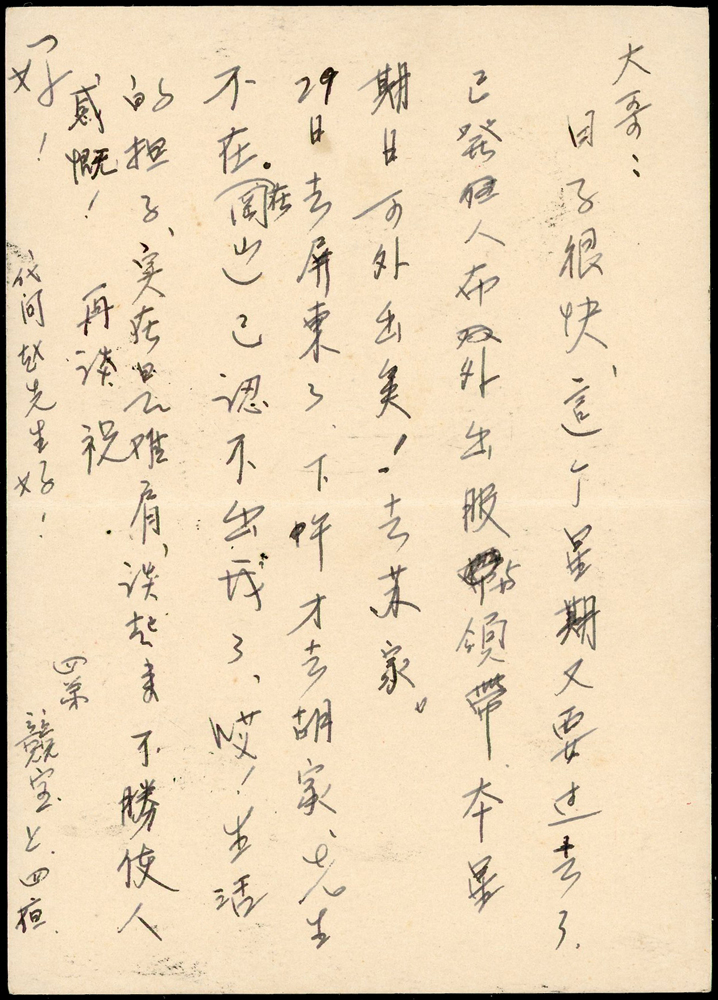 大哥：
日子很快、這个星期又要过去了.
已發 人布外出服 領帶 本星
期日可外出矣！去 家。
29日去屏東了、下午才去胡家、先生
不在。在岡山已認不出我了、哎！生活
的担子、实在是 难肩、談起来不勝使人
感慨！ 再談 祝
好！
四弟
競宝上.四
代问赵先生好！